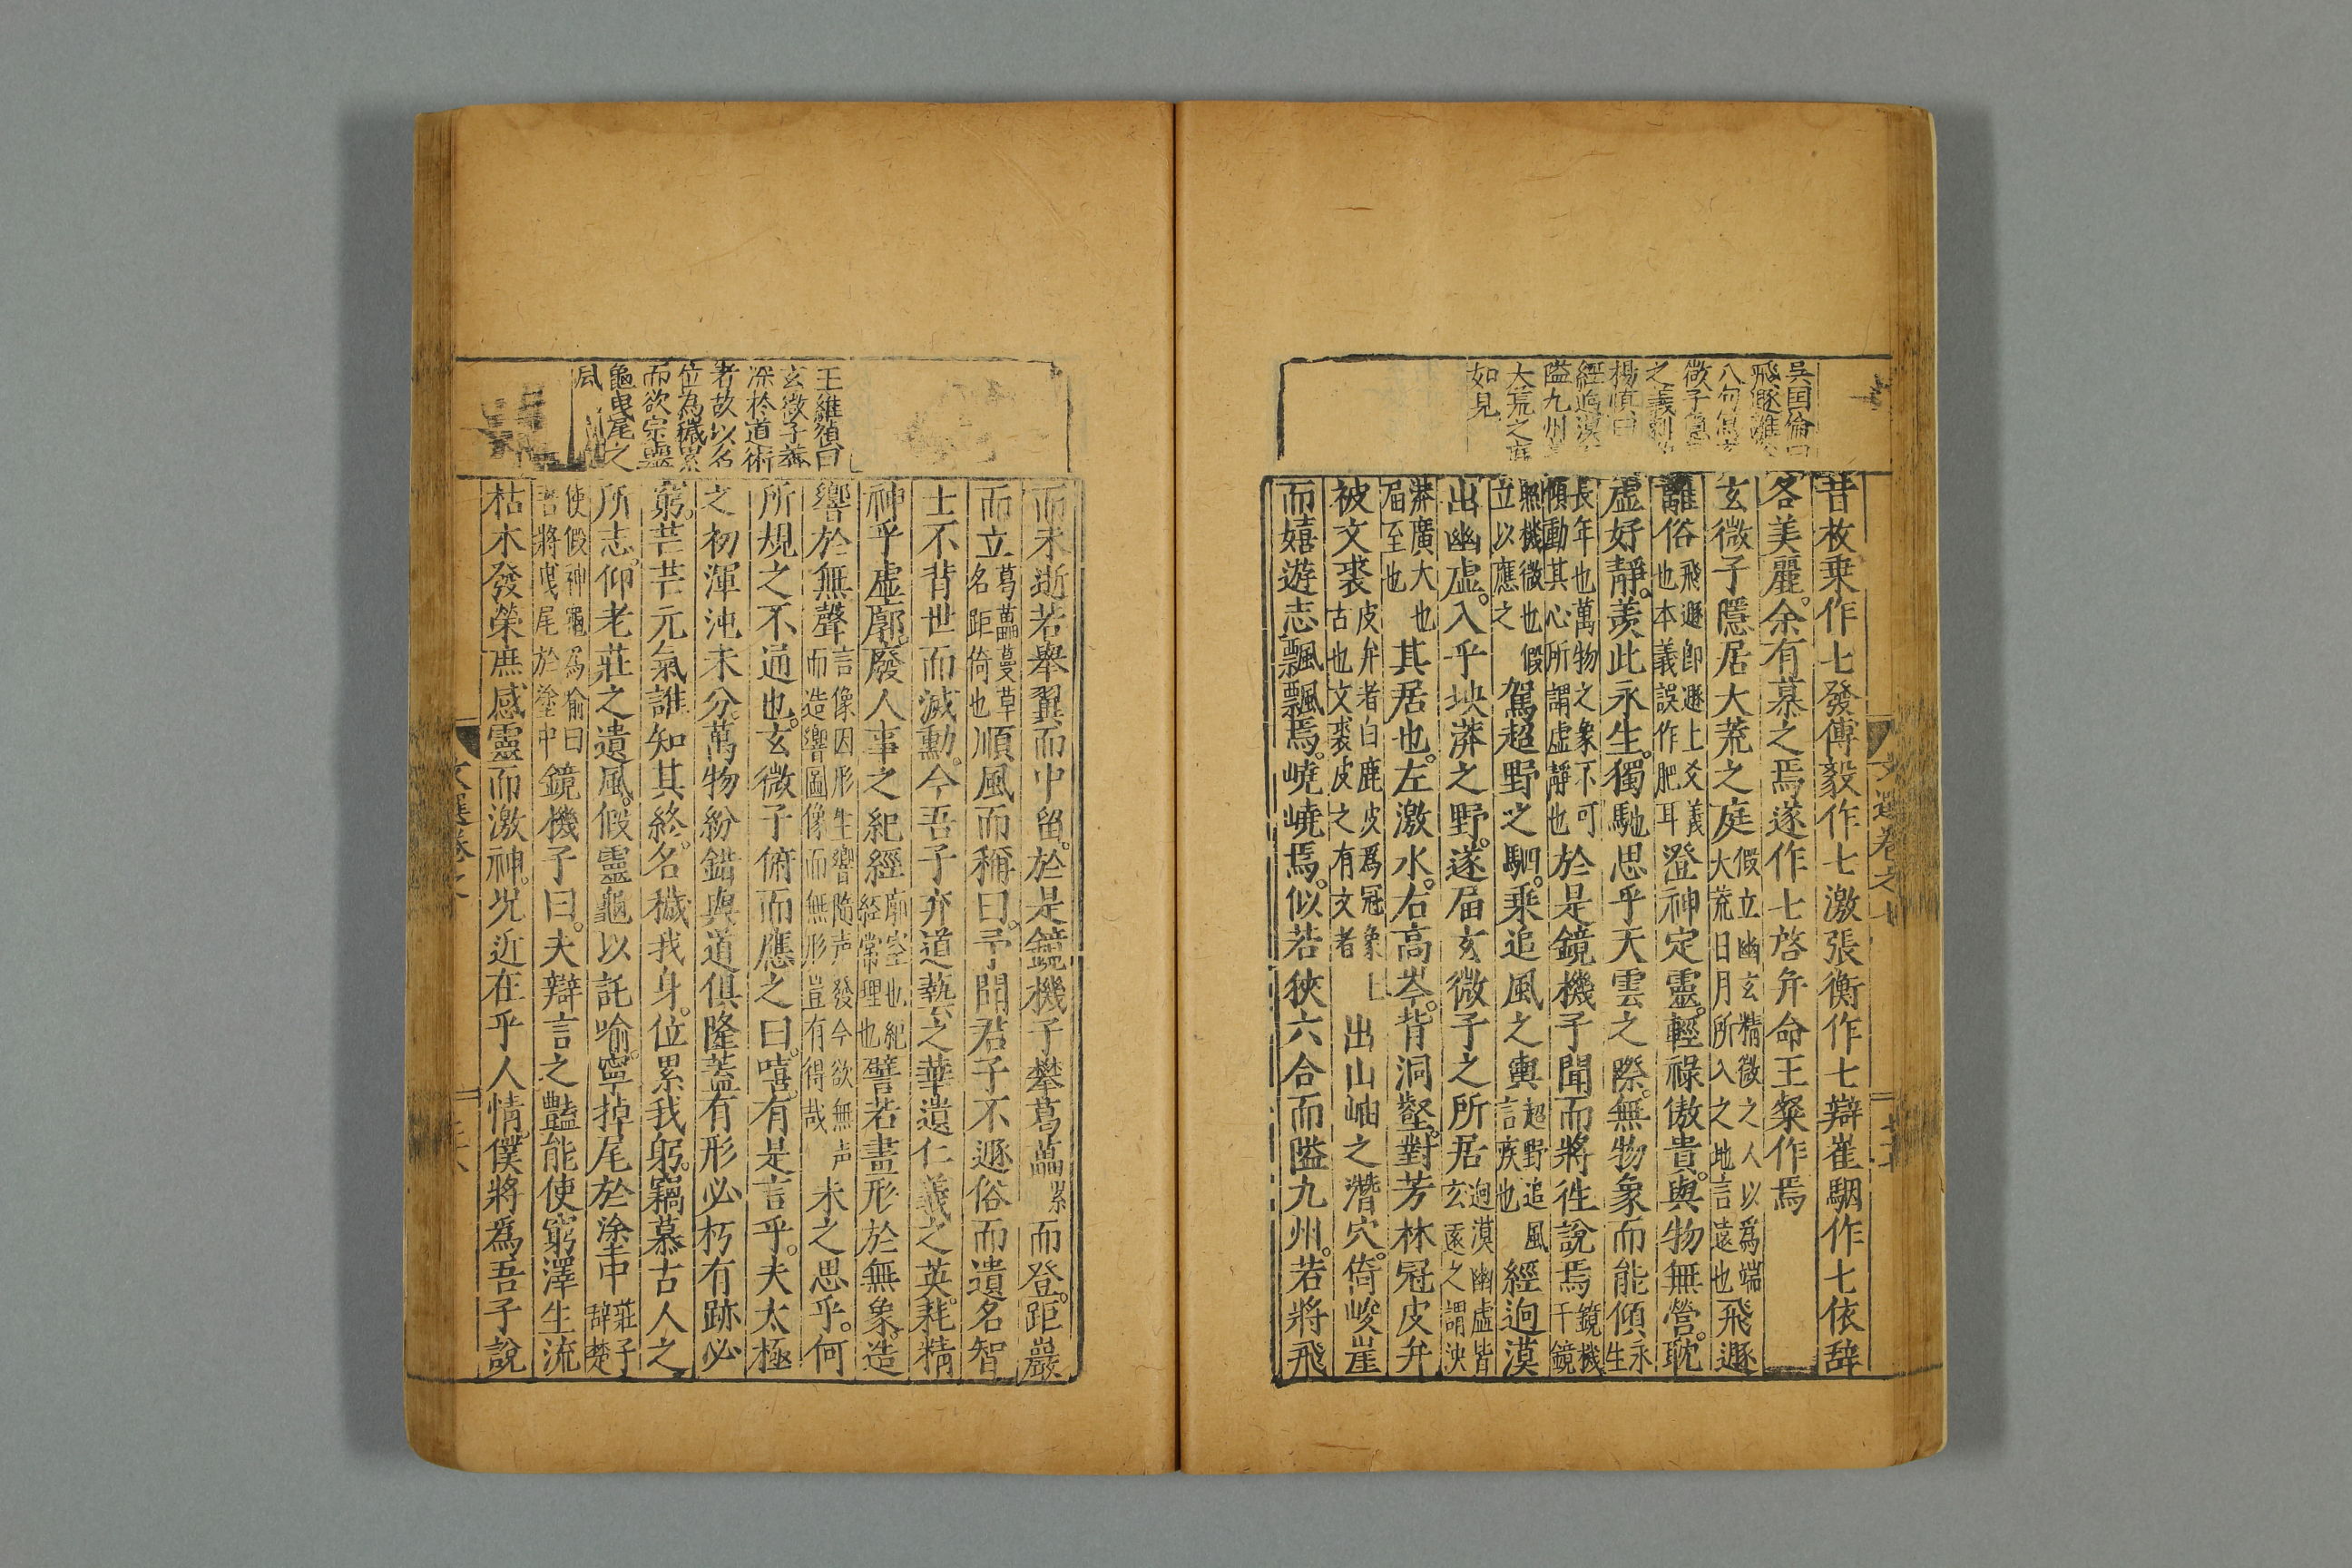 吳国倫曰
飛遯離
八句
微子
之義
楊慎曰
經迥漠
隘九州
大荒之庭
如見
昔枚乗作七發傅毅作七激張衡作七辯崔駰作七依辞
各美麗。余有慕之焉遂作七啓幷命王粲作焉
玄微子隱居大荒之庭假立幽玄精微之人以爲端大荒日月所入之地言遠也飛遯
離俗飛遯卽遯上爻義也本義誤作肥耳澄神定靈。輕祿傲貴。與物無營。耽
虛好靜。羨此永生。獨馳思乎天雲之際。無物象而能傾永生
長年也萬物之象不可傾動其心所謂虛靜也於是鏡機子聞而將徃說焉鏡機于鏡
照機微也假立以應之駕超野之駟。乗追風之輿超野追風言疾也經迥漠
出幽虛。入乎坱漭之野。遂屆玄微子之所居迥漠幽虛皆玄遠之謂泱
漭廣大也屆至也其居也。左激水。右高岑。背洞壑。對芳林冠皮弁
被文裘皮弁者白鹿皮爲冠象上古也文裘皮之有文者出山岫之潛穴。倚峻崖
而嬉遊志飄飄焉。嶢嶢焉。似若狹六合而隘九州。若將飛
文選卷之七
王維禎曰
玄微子蓋
深於道術
者故以名
位為穢累
而欲宗靈
龜曳尾之
風
而未逝若舉翼而中留。於是鏡機子攀葛藟累而登。距巖
而立葛藟蔓草名距倚也順風而稱曰。予聞君子不遯俗而遺名智
士不背世而滅勳。今吾子弃道藝之華遺仁義之英。耗精
神乎虛廓。廢人事之紀經廓空也紀經常理也譬若畫形於無象。造
響於無聲言像因形生響隨声發今欲無声而造響圖像而無形豈有得哉未之思乎。何
所規之不通也。玄微子俯而應之曰。嘻。有是言乎。夫太極
之初渾沌未分。萬物紛錯與道俱隆蓋有形必朽有跡必
窮。芒芒元氣誰知其終。名穢我身。位累我躬。竊慕古人之
所志。仰老莊之遺風。假靈龜以託喻。寧掉尾於塗中莊子辞楚
使假神龜為喻曰吾將曳尾於塗中鏡機子曰。夫辯言之豔能使窮澤生流
枯木發榮庶感靈而激神。况近在乎人情。僕將爲吾子說